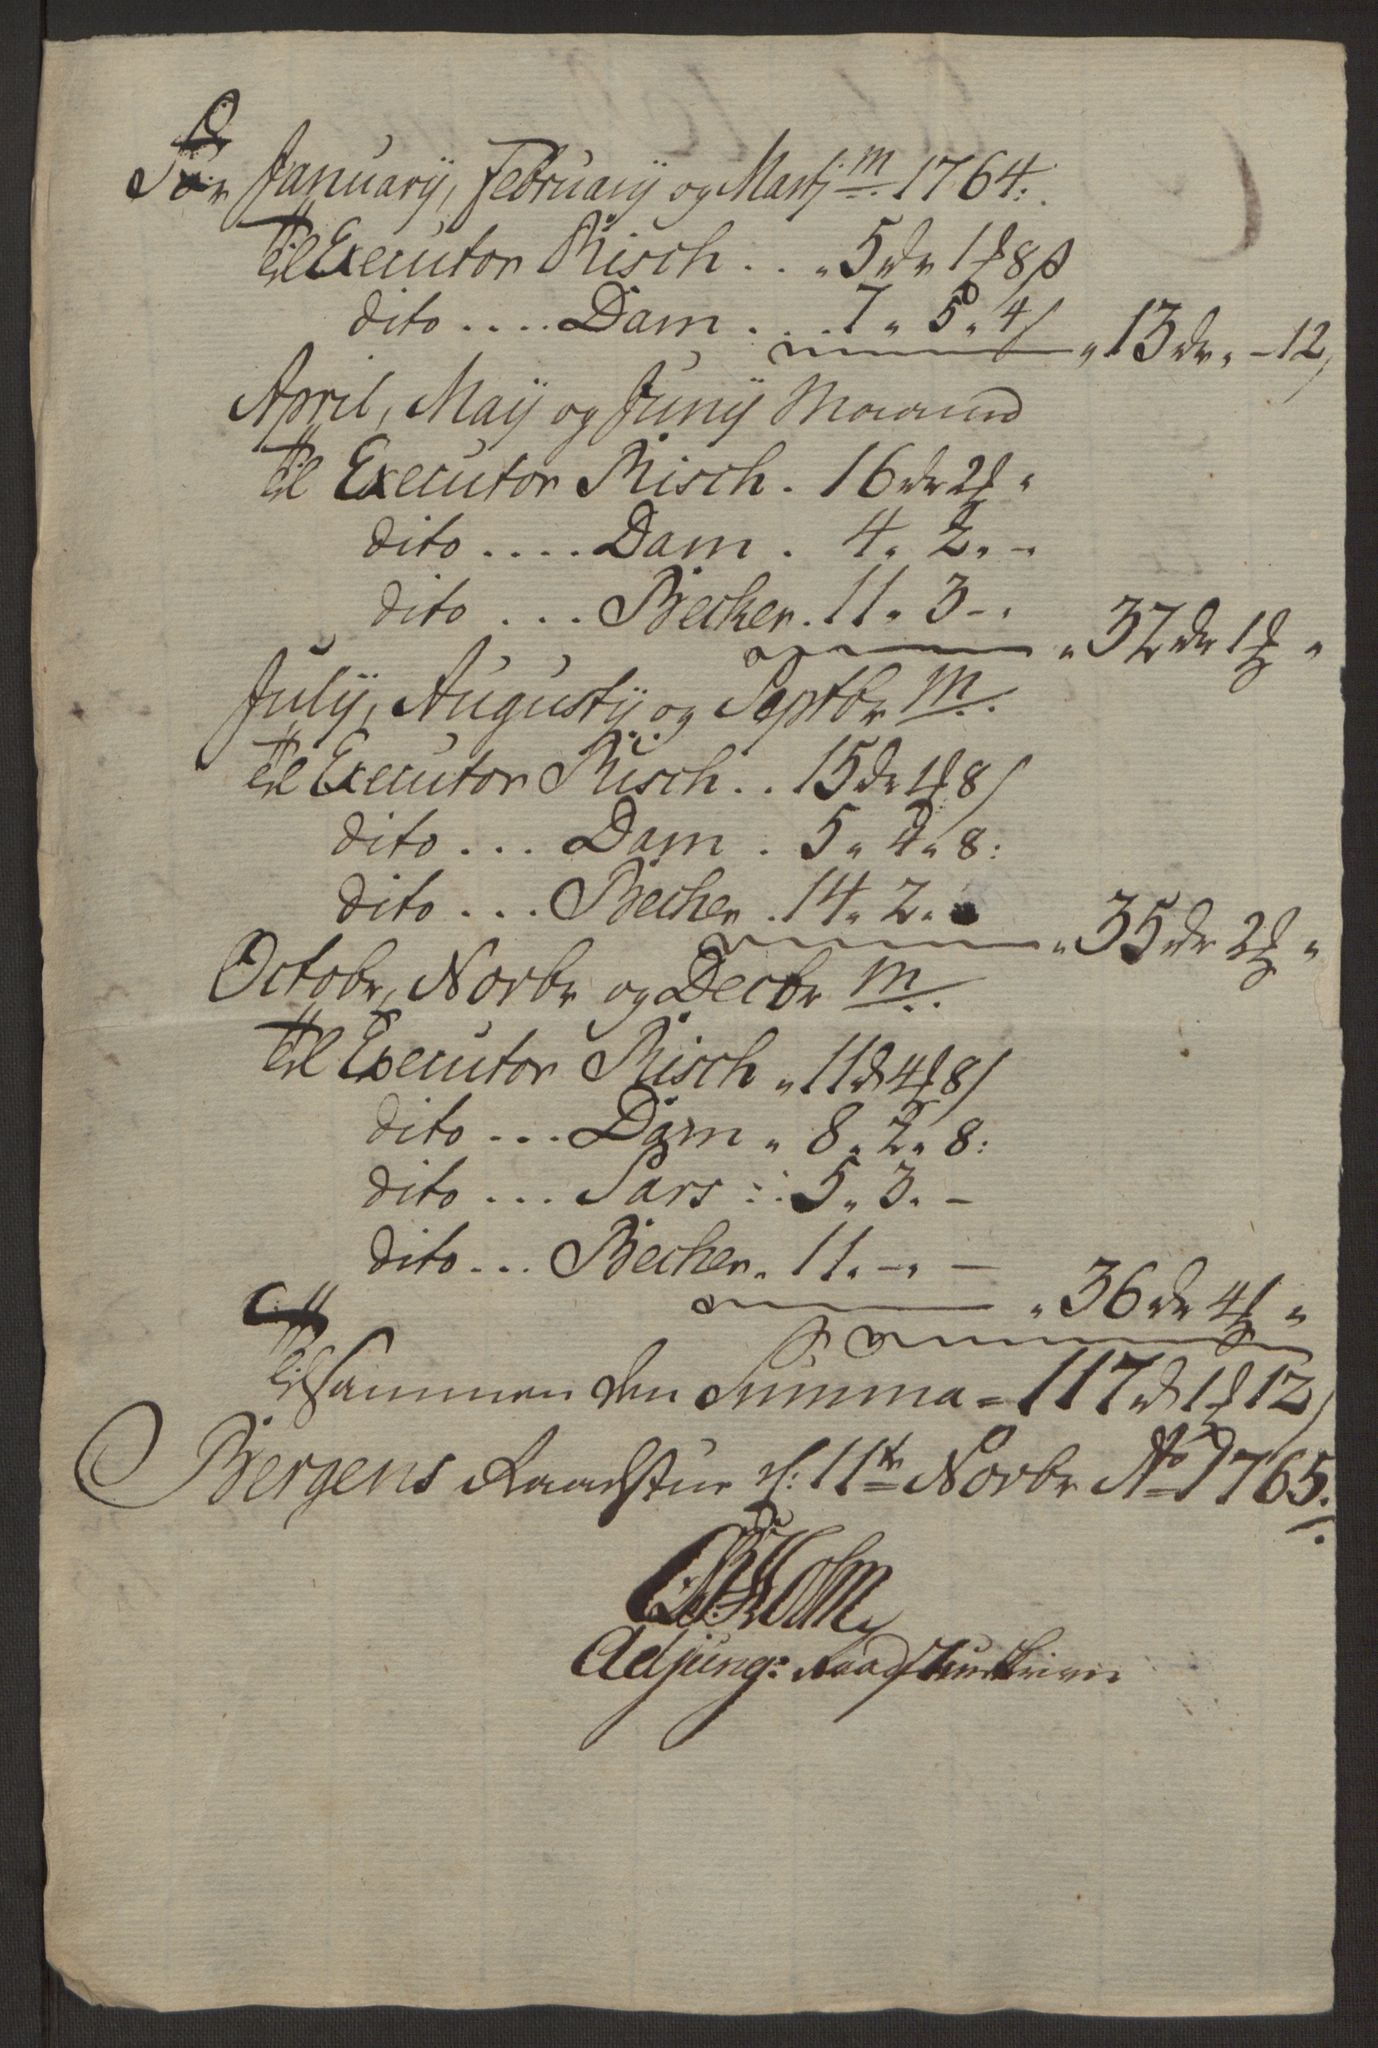 For January, February og Martj M. 1764.
til Executor Risch . . „ 5 dr 1 ₰ 8 β
dito . . . . Dam . . . 7 „ 5 „ 4 /
„ 13 dr „ – 12 /
April, Maij og Junij Maaned
til Executor Risch . 16 dr 2 ₰ „
dito . . . . Dam . 4 „ 2 „ –
dito . . . Becher . 11 „ 3 – „
„ 32 dr 1 ₰ „
Julij, Augustij og Septbr M.
til Executor Risch . . 15 dr 1 ₰ 8 /
dito . . . Dam . 5 „ 4 „ 8 :
dito . . . Becher . 14 „ 2 „
„ 35 dr 2 ₰ „
Octobr, Novbr og Decbr M.
til Executor Risch „ 11 d 4 ₰ 8 /
dito . . . Dam „ 8 „ 2 „ 8 :
dito . . . Sars . . 5 „ 3 „ –
dito . . . Becher „ 11 „ – „ –
„ 36 dr 4 ₰ „
tilsammen den Summa = 117 d 1 ₰ 12 /
Bergens Raadstue d: 11te Novbr Ao 1765.
Holm
Adjung: Raadstueskriver